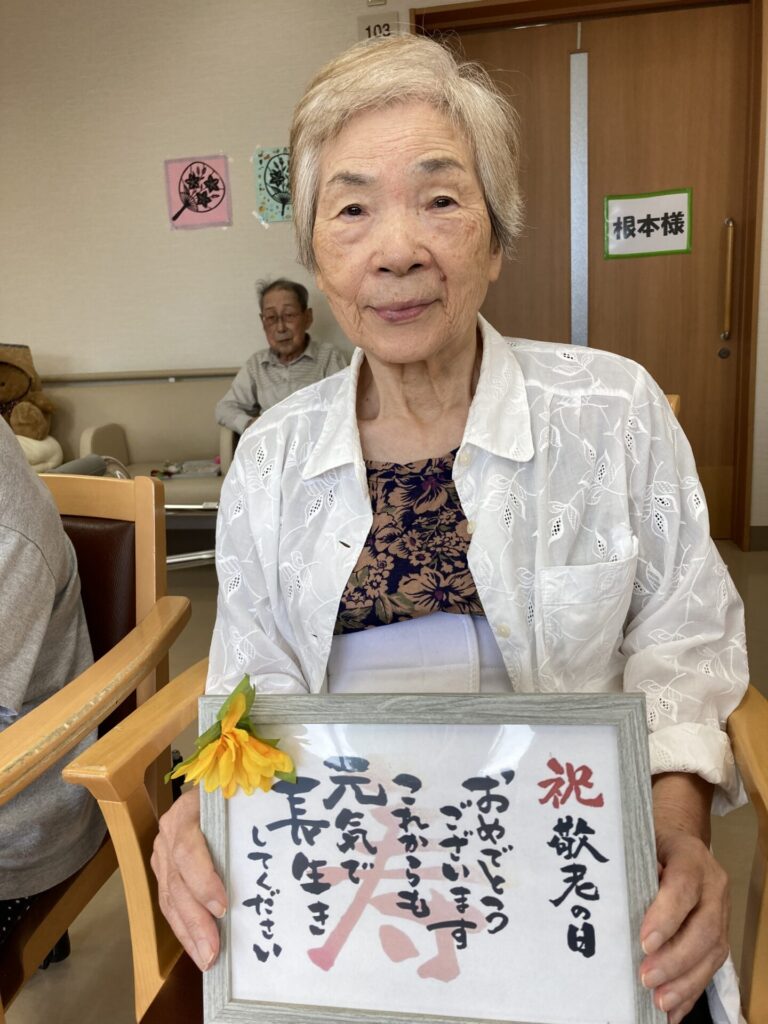 103
根本様
祝 敬老の日
おめでとう
ございます
これからも
元気で
長生き
してください
寿